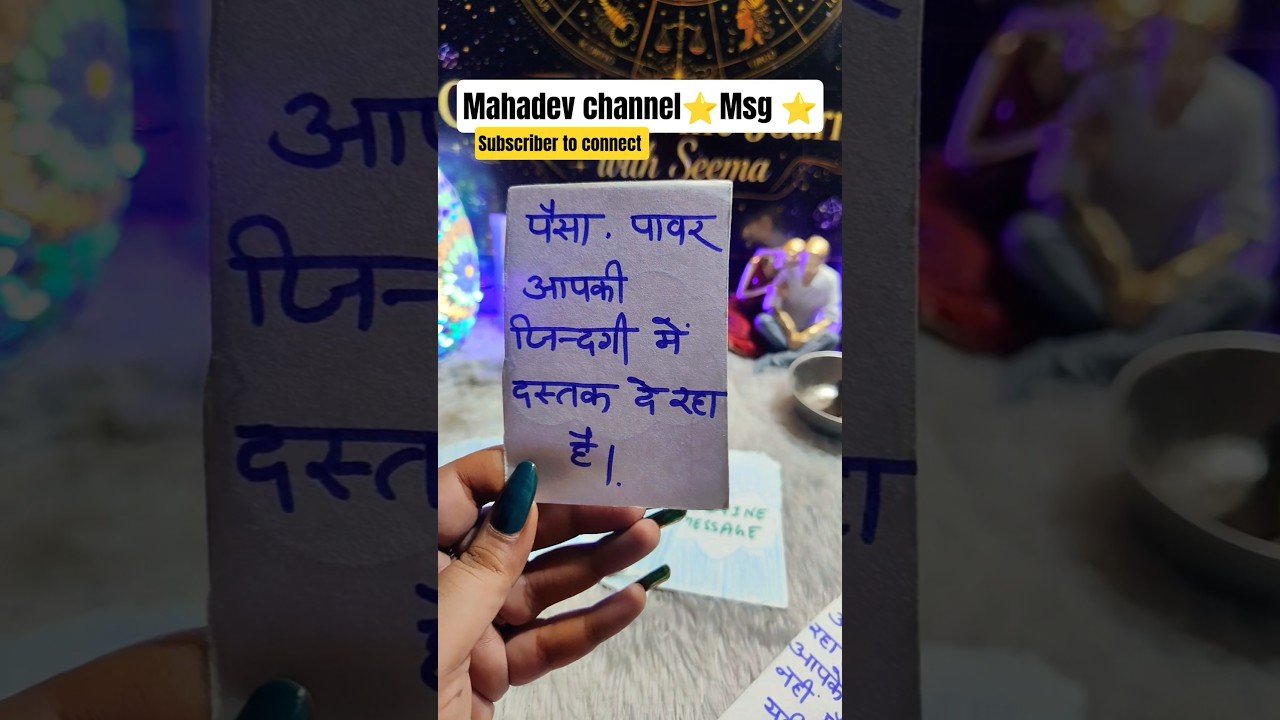 SCORPIO
VIRGO
Mahadev channel⭐Msg ⭐
Subscriber to connect
with Seema
पैसा. पावर
आपकी
जिन्दगी में
दस्तक दे रहा
है।.
MESSAGE
रहा
आपके
नहीं